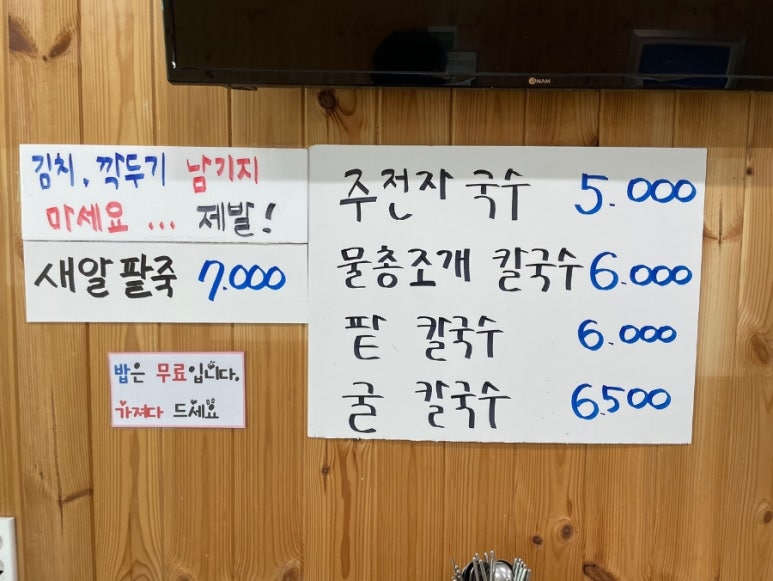 ONAM
김치, 깍두기 남기지
마세요 ... 제발!
새알팥죽 7.000
밥은 무료입니다.
가져다 드세요
주전자 국수 5.000
물총조개 칼국수 6.000
팥 칼국수 6.000
굴 칼국수 6.500